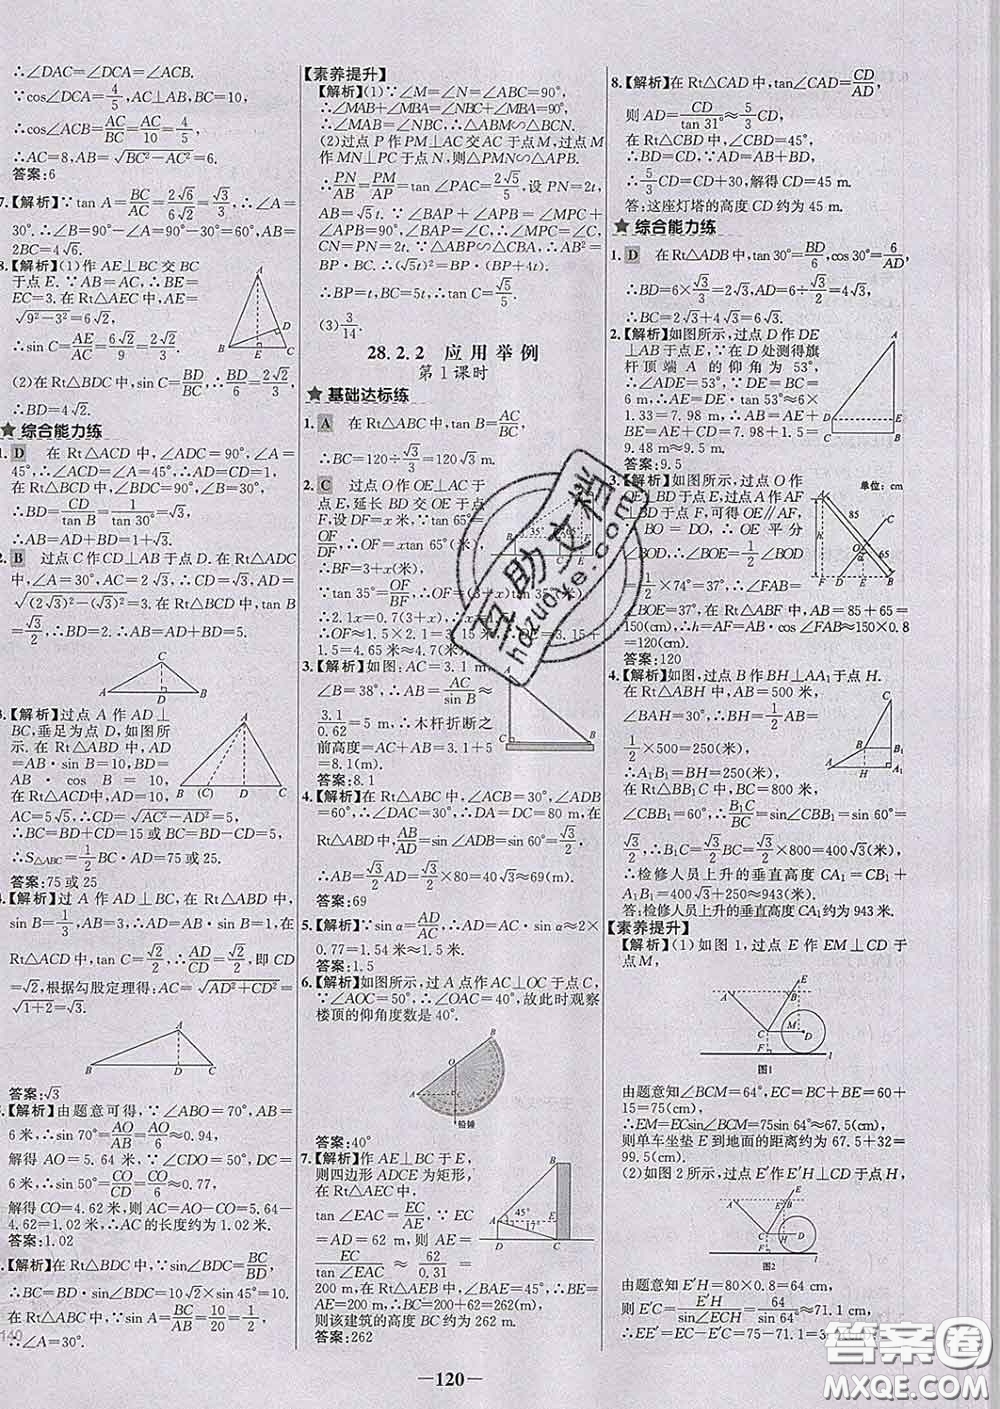 ∴∠DAC=∠DCA=∠ACB.
∵cos∠DCA=4/5,AC⊥AB,BC=10,
∴cos∠ACB=AC/BC=AC/10=4/5,
∴AC=8,AB=√(BC²-AC²)=6.
答案:6
7.【解析】∵tan A=BC/AC=2√6/6√2=√3/3,∴∠A=
30°.∴∠B=90°-∠A=90°-30°=60°,AB=
2BC=4√6.
8.【解析】(1)作AE⊥BC交BC
于点E.∵AB=AC,∴BE=
EC=3.在Rt△AEC中,AE=
√(9²-3²)=6√2,
∴sin C=AE/AC=6√2/9=2√2/3.
(2)在Rt△BDC中,sin C=BD/BC,∴BD/6=2√2/3,
∴BD=4√2.
★综合能力练
1. D 在Rt△ACD中,∠ADC=90°,∠A=
45°,∴∠ACD=∠A=45°,∴AD=CD=1,
在Rt△BCD中,∠BDC=90°,∠B=30°,
∴BD=CD/tan B=1/(√3/3)=√3,
∴AB=AD+BD=1+√3.
2. B 过点C作CD⊥AB于点D.在Rt△ADC
中,∠A=30°,AC=2√3,∴CD=√3,AD=
√((2√3)²-(√3)²)=3.在Rt△BCD中,tan B=
√3/2,∴BD=2.∴AB=AD+BD=5.
3.【解析】过点A作AD⊥
BC,垂足为点D,如图所
示.在Rt△ABD中,AD=
AB·sin B=10,BD=
AB·cos B=10,
在Rt△ACD中,AD=10,
AC=5√5,∴CD=√(AC²-AD²)=5,
∴BC=BD+CD=15或BC=BD-CD=5,
∴S△ABC=1/2 BC·AD=75或25.
答案:75或25
4.【解析】过A作AD⊥BC,在Rt△ABD中,
sin B=1/3,AB=3,∴AD=AB·sin B=1,在
Rt△ACD中,tan C=√2/2,∴AD/CD=√2/2,即CD
=√2,根据勾股定理得:AC=√(AD²+CD²)=
√(1+2)=√3.
答案:√3
5.【解析】由题意可得,∵∠ABO=70°,AB=
6米,∴sin 70°=AO/AB=AO/6≈0.94,
解得AO=5.64米,∵∠CDO=50°,DC=
6米,∴sin 50°=CO/CD=CO/6≈0.77,
解得CO=4.62米,则AC=AO-CO=5.64-
4.62=1.02米,∴AC的长度约为1.02米.
答案:1.02
【解析】在Rt△BDC中,∵sin∠BDC=BC/BD,
∴BC=BD·sin∠BDC=10√2×sin 45°=10.
在Rt△ABC中,∵sin∠A=BC/AB=10/20=1/2,
∴∠A=30°.
140
【素养提升】
【解析】(1)∵∠M=∠N=∠ABC=90°,
∴∠MAB+∠MBA=∠NBC+∠MBA=90°,
∴∠MAB=∠NBC,∴△ABM∽△BCN.
(2)过点P作PM⊥AC交AC于点M,过点M
作MN⊥PC于点N,则△PMN∽△APB.
∴PN/AB=PM/AP=tan∠PAC=2√5/5,设PN=2t,
则AB=√5t.∵∠BAP+∠APB=∠MPC+
∠APB=90°,∴∠BAP=∠MPC=∠C,
CN=PN=2t.∵△ABP∽△CBA,∴AB²=
BP·BC.∴(√5t)²=BP·(BP+4t).
∴BP=t,BC=5t,∴tan C=√5/5.
(3)3/14.
28.2.2 应用举例
第1课时
★基础达标练
1. A 在Rt△ABC中,tan B=AC/BC,
∴BC=120÷√3/3=120√3 m.
2. C 过点O作OE⊥AC于
点E,延长BD交OE于点
F,设DF=x米,∵tan 65°=
OF/DF,∴OF=xtan 65°(米),
∴BF=3+x(米),
∵tan 35°=OF/BF,
∴2.1x=0.7(3+x),
∴OF≈1.5×2.1=3.15(米),∴OE≈3.15+
1.5=4.65≈4.7(米).
3.【解析】如图:AC=3.1 m,
∠B=38°,∴AB=AC/sin B≈
3.1/0.62=5 m,∴木杆折断之
前高度=AC+AB=3.1+5
=8.1(m).
答案:8.1
4.【解析】在Rt△ABC中,∠ACB=30°,∠ADB
=60°,∴∠DAC=30°,∴DA=DC=80 m,在
Rt△ABD中,AB/AD=sin∠ADB=sin 60°=√3/2,
∴AB=√3/2 AD=√3/2×80=40√3≈69(m).
答案:69
5.【解析】∵sin α=AD/AC,∴AD=AC·sin α≈2×
0.77=1.54米≈1.5米.
答案:1.5
6.【解析】如图所示,过A点作AC⊥OC于点C,
∵∠AOC=50°,∴∠OAC=40°,故此时观察
楼顶的仰角度数是40°.
铅锤
答案:40°
7.【解析】作AE⊥BC于E,
则四边形ADCE为矩形,
在Rt△AEC中,
tan∠EAC=EC/AE,
AD=62 m,则AE=
EC/tan∠EAC≈62/0.31=
200 m,在Rt△AEB中,∠BAE=45°,∴BE=
AE=200 m,∴BC=200+62=262(m),
则该建筑的高度BC约为262 m.
答案:262
8.【解析】在Rt△CAD中,tan∠CAD=CD/AD,
则AD=CD/tan 31°≈5/3 CD,
在Rt△CBD中,∠CBD=45°,
∴BD=CD,∵AD=AB+BD,
∴5/3 CD=CD+30,解得CD=45 m.
答:这座灯塔的高度CD约为45 m.
★综合能力练
1. D 在Rt△ADB中,tan30°=BD/6,cos30°=6/AD,
∴BD=6×√3/3=2√3,AD=6÷√3/2=4√3,
∴BC=2√3+4√3=6√3.
2.【解析】如图所示,过点D作DE
⊥AB于点E,在D处测得
旗杆顶端A的仰角为53°,
∴∠ADE=53°,∵BC=DE=
6 m,∴AE=DE·tan 53°≈6×
1.33=7.98 m,∴AB=AE+
BE=AE+CD=7.98+1.5=
9.48 m≈9.5 m.
答案:9.5
3.【解析】如图所示,过点O作
OE⊥BD于点E,过点A作AF
⊥BD于点F,可得OE∥AF,
∵BO=DO,∴OE平分
∠BOD,∴∠BOE=1/2∠BOD
=1/2×74°=37°,∴∠FAB=
∠BOE=37°,在Rt△ABF中,AB=85+65=
150(cm),∴h=AF=AB·cos∠FAB≈150×0.8
=120(cm).
单位:cm
答案:120
4.【解析】如图,过点B作BH⊥AA₁于点H.
在Rt△ABH中,AB=500米,
∠BAH=30°,∴BH=1/2 AB=
1/2×500=250(米),
∴A₁B₁=BH=250(米),
在Rt△BB₁C中,BC=800米,
∠CBB₁=60°,∴B₁C/BC=sin∠CBB₁=sin60°=
√3/2,∴B₁C=√3/2 BC=√3/2×800=400√3(米),
∴检修人员上升的垂直高度CA₁=CB₁+
A₁B₁=400√3+250≈943(米).
答:检修人员上升的垂直高度CA₁约为943米.
【素养提升】
【解析】(1)如图1,过点E作EM⊥CD于
点M,
图1
由题意知∠BCM=64°,EC=BC+BE=60+
15=75(cm),
∴EM=ECsin∠BCM=75sin 64°≈67.5(cm),
则单车坐垫E到地面的距离约为67.5+32=
99.5(cm).
(2)如图2所示,过点E′作E′H⊥CD于点H,
图2
由题意知E′H=80×0.8=64(cm),
则E′C=E′H/sin∠ECH=64/sin 64°≈71.1(cm),
∴EE′=CE-CE′=75-71.1=3.
—120—
互助文档
hdzuoye.com
答案圈
MXQE.COM